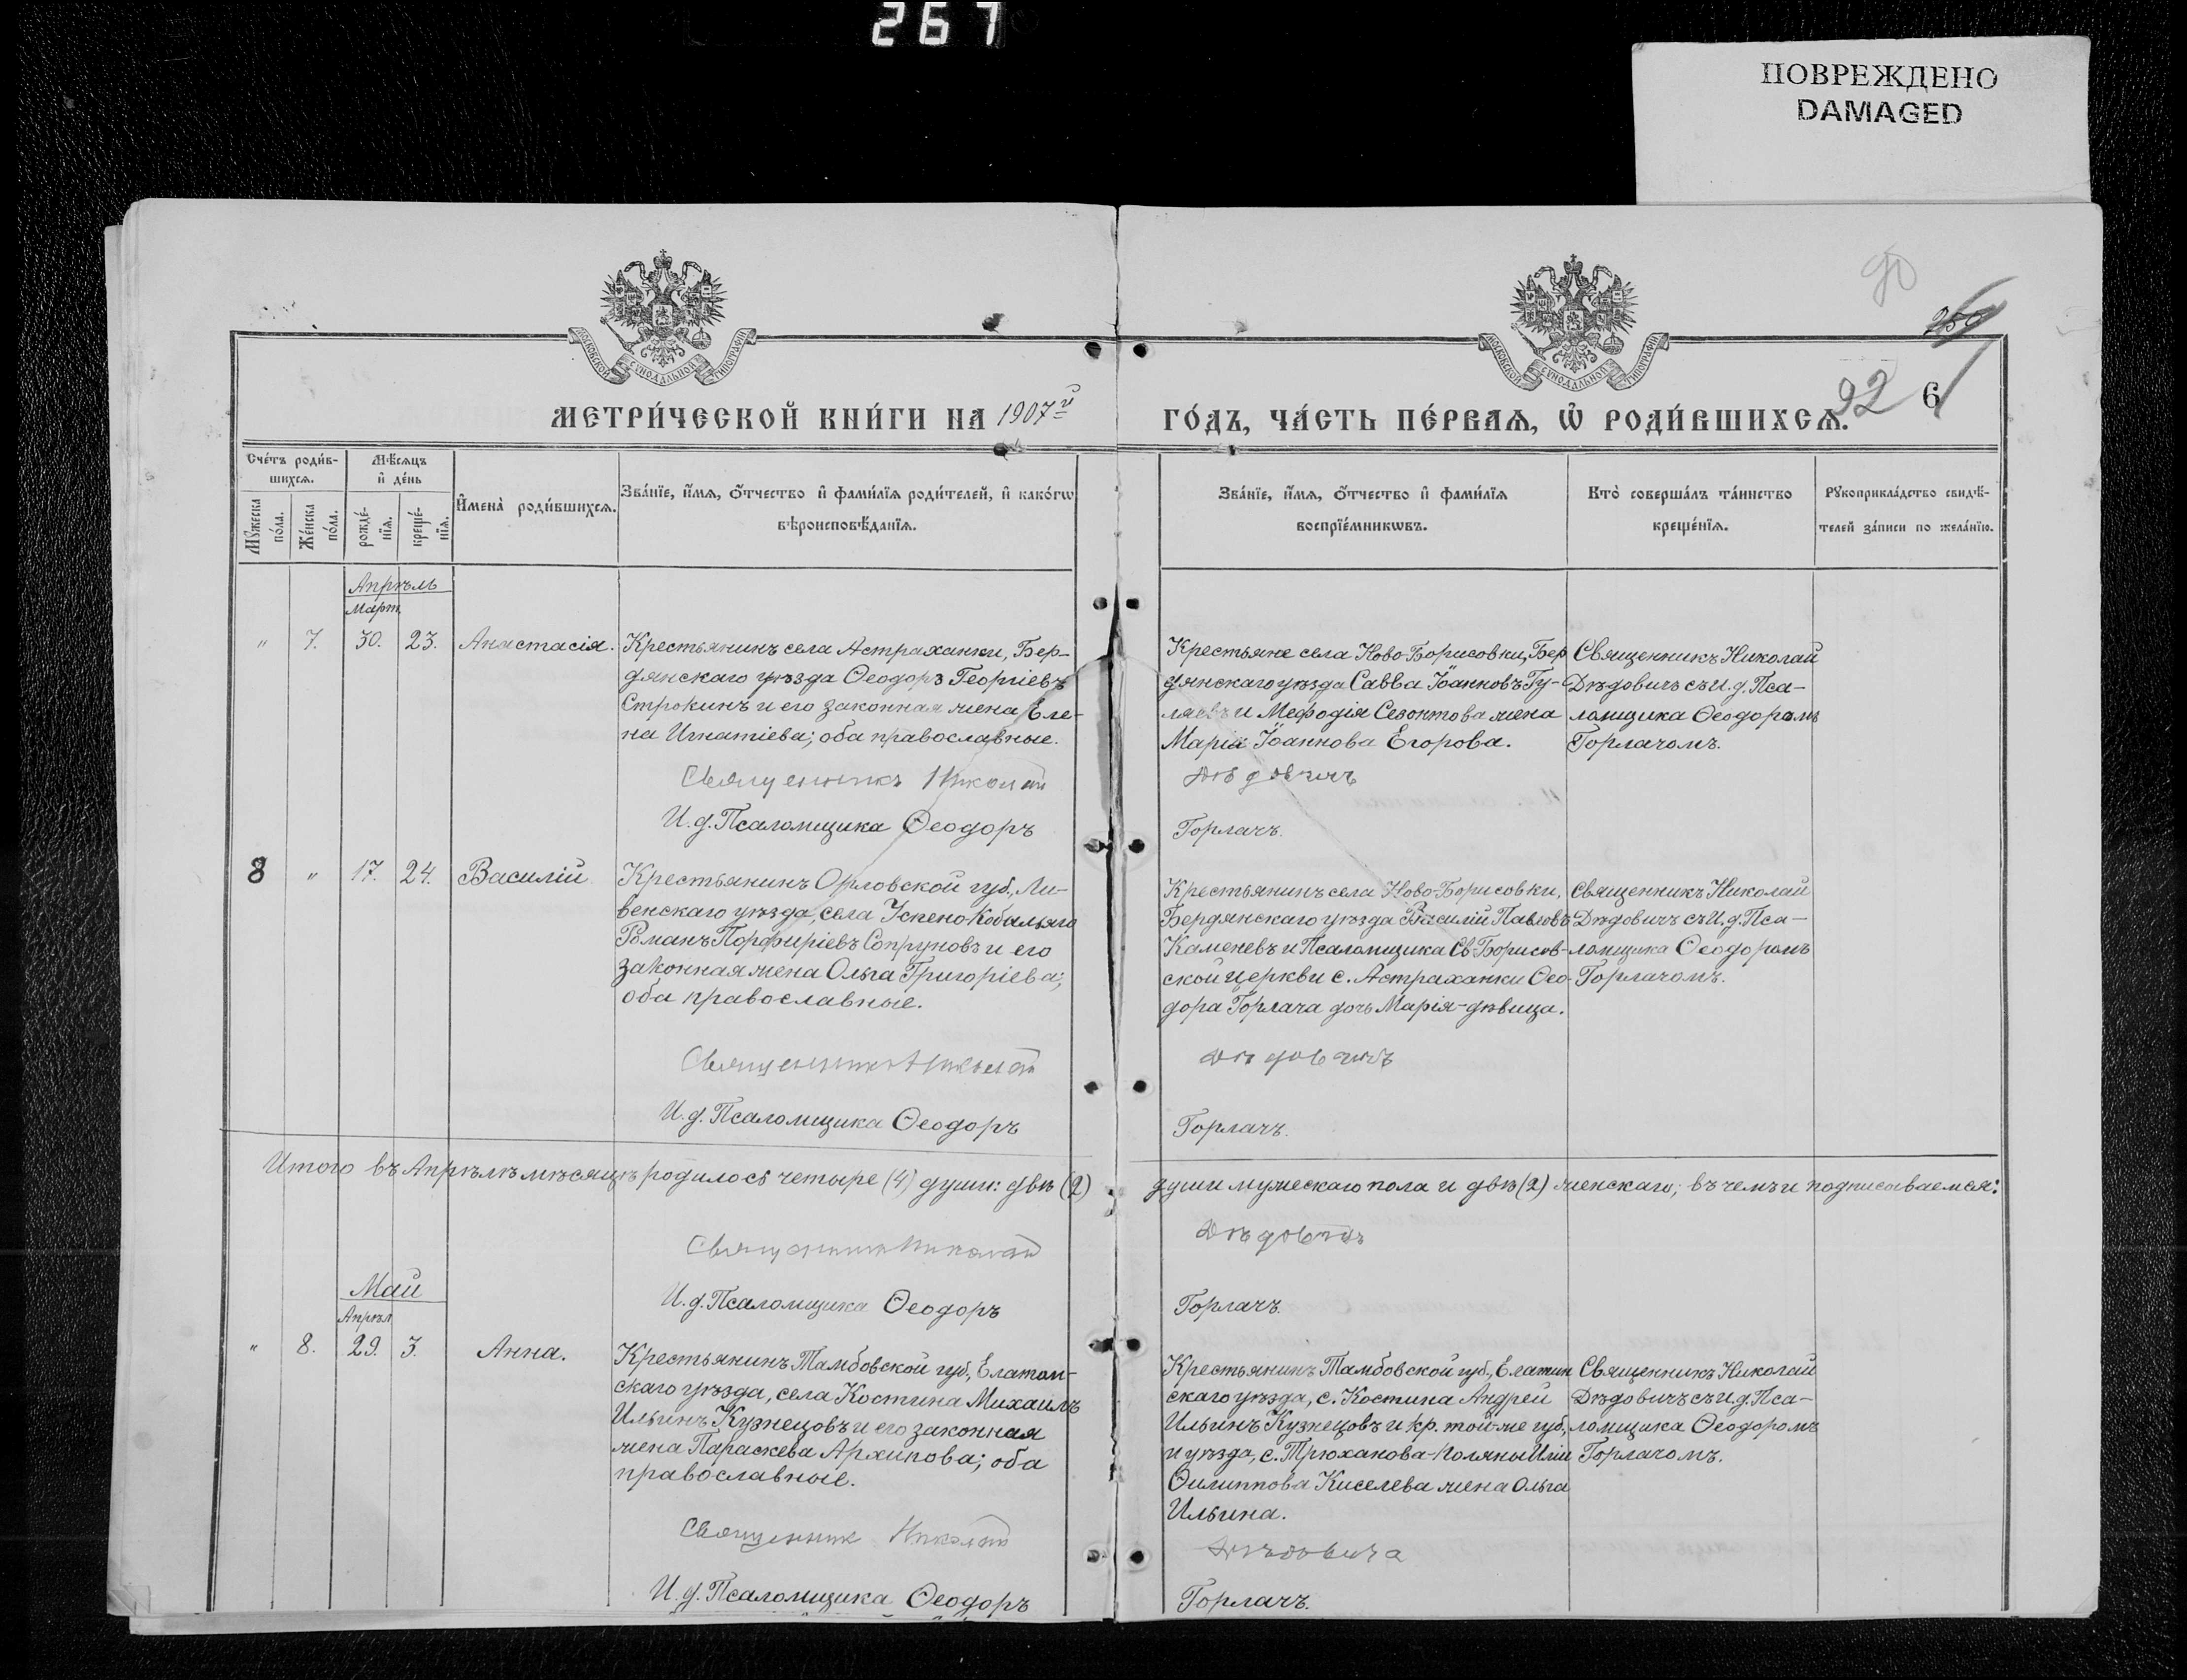 267
ПОВРЕЖДЕНО
DAMAGED
92
6
МОСКОВСКОЙ СѴНОДАЛЬНОЙ ТИПОГРАФІИ
МОСКОВСКОЙ СѴНОДАЛЬНОЙ ТИПОГРАФІИ
МЕТРИ́ЧЕСКОЙ КНИ́ГИ НА 1907й
ГО́ДЪ, ЧА́СТЬ ПЕ́РВАѦ, Ѡ҆ РОДИ́ВШИХСѦ.
Сче́тъ роди́в-
шихсѧ.
Мꙋжеска по́ла.
Же́нска по́ла.
Мѣ́сѧцъ
и҆ де́нь
рожде́-
нїѧ.
креще́-
нїѧ.
И҆мена̀ роди́вшихсѧ.
Зва́нїе, и҆́мѧ, ѻ҆́тчество и҆ фами́лїѧ роди́телей, и҆ како́гѡ
вѣроисповѣ́данїѧ.
Зва́нїе, и҆́мѧ, ѻ҆́тчество и҆ фами́лїѧ
воспрїе́мникѡвъ.
Кто̀ соверша́лъ та́инство
креще́нїѧ.
Рꙋкоприкла́дство свидѣ́-
телей за́писи по жела́нїю.
Апрѣль
Март.
" 7. 30. 23. Анастасія.
Крестьянинъ села Астраханки, Бер-
дянскаго уѣзда Ѳеодоръ Георгіевъ
Строкинъ и его законная жена Еле-
на Игнатіева; оба православные.
Священникъ Николай
И. д. Псаломщика Ѳеодоръ
Крестьяне села Ново-Борисовки, Бер
дянскаго уѣзда Савва Іоанновъ Гу-
ляевъ и Мефодія жена
Марія Іоаннова Егорова.
Дѣдовичъ
Горлачъ.
Священникъ Николай
Дѣдовичъ съ И. д. Пса-
ломщика Ѳеодоромъ
Горлачомъ.
8 " 17. 24. Василій
Крестьянинъ Орловской губ., Ли-
венскаго уѣзда, села Успено-Кобыльяго
Романъ Порфиріевъ Сопруновъ и его
законная жена Ольга Григоріева;
оба православные.
Священникъ Николай
И. д. Псаломщика Ѳеодоръ
Крестьянинъ села Ново-Борисовки,
Бердянскаго уѣзда Василій Павловъ
Каменевъ и Псаломщика Св-Борисов-
ской церкви с. Астраханки Ѳео-
дора Горлача дочь Марія-дѣвица.
Дѣдовичъ
Горлачъ.
Священникъ Николай
Дѣдовичъ съ И. д. Пса-
ломщика Ѳеодоромъ
Горлачомъ.
Итого въ Апрѣлѣ мѣсяцѣ родилось четыре (4) души: двѣ (2)
души мужескаго пола и двѣ (2) женскаго; въ чемъ и подписываемся:
Священникъ Николай
Дѣдовичъ
И. д. Псаломщика Ѳеодоръ
Горлачъ.
Май
Апрѣл
" 8. 29. 3. Анна.
Крестьянинъ Тамбовской губ., Елатом-
скаго уѣзда, села Костина Михаилъ
Ильинъ Кузнецовъ и его законная
жена Параскева Архипова; оба
православные.
Священникъ Николай
И. д. Псаломщика Ѳеодоръ
Крестьянинъ Тамбовской губ., Елатом
скаго уѣзда, с. Костина Андрей
Ильинъ Кузнецовъ и кр. той-же губ.,
и уѣзда, с. Трюханова-Поляны Иліи
Ѳилиппова Киселева жена Ольга
Ильина.
Дѣдовичъ
Горлачъ.
Священникъ Николай
Дѣдовичъ съ И. д. Пса-
ломщика Ѳеодоромъ
Горлачомъ.